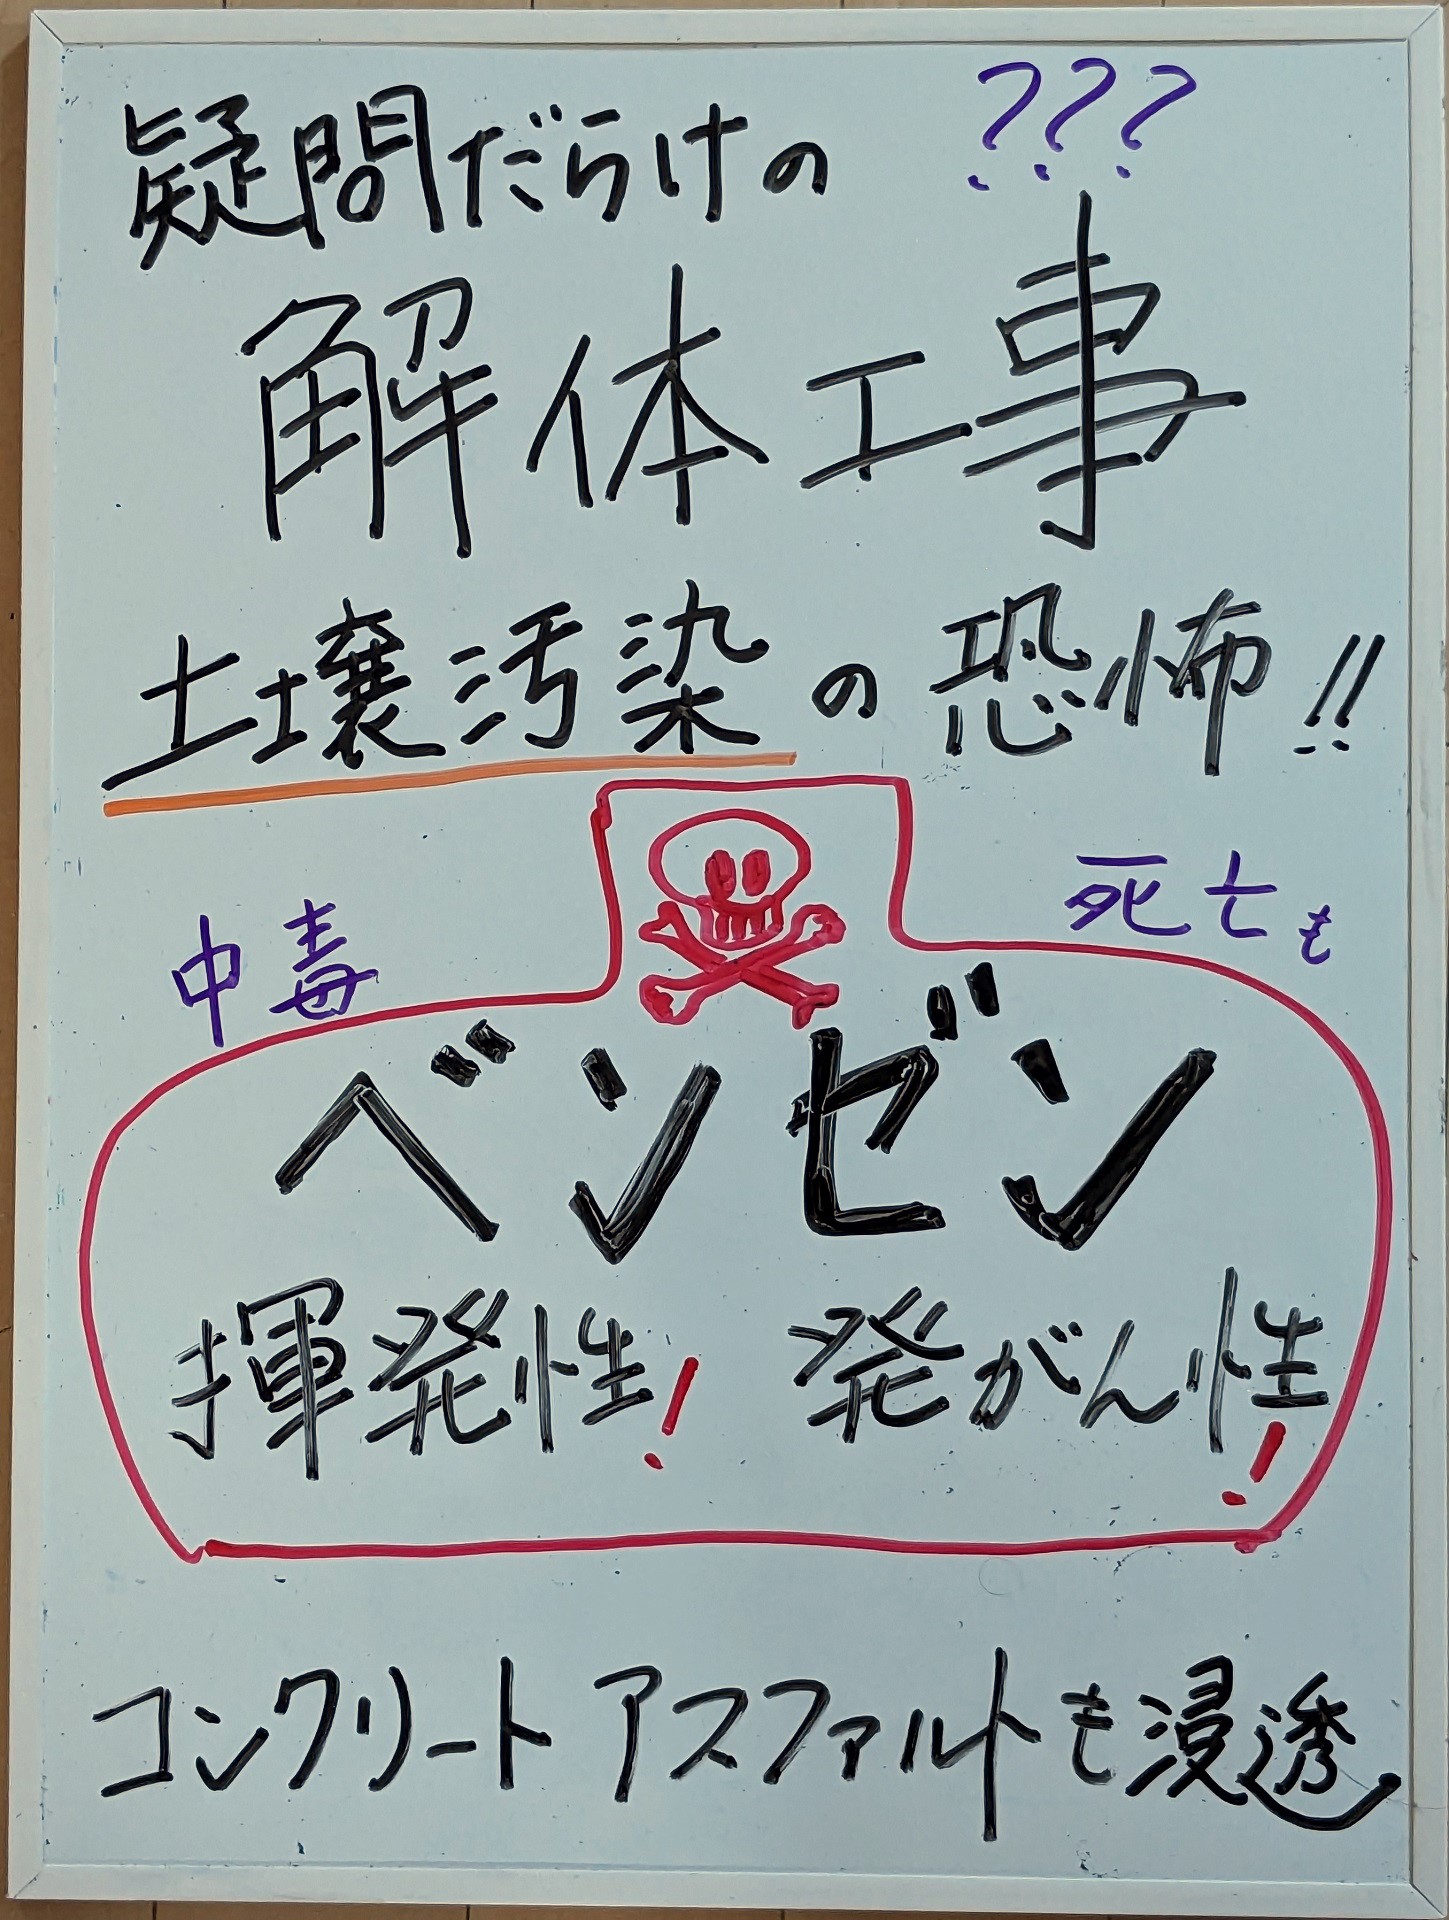 疑問だらけの ???
解体工事
土壌汚染の恐怖!!
中毒
死亡も
ベンゼン
揮発性! 発がん性!
コンクリート アスファルトも浸透